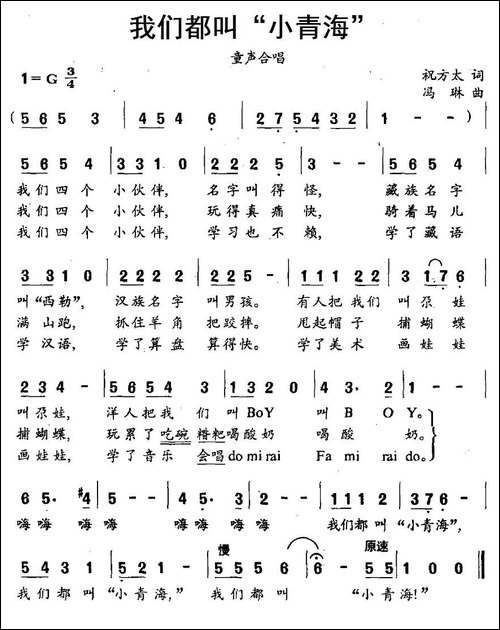 我们都叫“小青海”
童声合唱
1=G 3/4
祝方太 词
冯琳 曲
( 5 6 5 3 | 4 5 4 6 | 2 7 5 4 3 2 | 1 - - )
5 6 5 4 | 3 3 1 0 | 2 2 2 5 | 3 - - | 5 6 5 4
我们四个 小伙伴, 名字叫得怪, 藏族名字
我们四个 小伙伴, 玩得真痛快, 骑着马儿
我们四个 小伙伴, 学习也不赖, 学了藏语
3 3 1 0 | 2 2 2 2 | 2 2 5 - | 1 1 1 2 2 | 3 1 7 6
叫“西勒”, 汉族名字 叫男孩。 有人把我们 叫尕娃
满山跑, 抓住羊角 把跤摔。 甩起帽子 捕蝴蝶
学汉语, 学了算盘 算得快。 学了美术 画娃娃
2 3 4 - | 5 6 5 4 3 | 1 3 2 0 | 4 3· 2 | 1 - -
叫尕娃, 洋人把我们叫BoY 叫B O Y。
捕蝴蝶, 玩累了吃碗糌粑喝酸奶 喝酸奶。
画娃娃, 学了音乐会唱do mi rai Fa mi rai do。
6 5· #4 | 5 - - | 4 5· 3 | 2 - - | 1 1 1 2 | 3 7 6 -
嗨嗨嗨嗨 嗨嗨嗨嗨 我们都叫“小青海”,
慢 原速
5 4 3 1 | 5 2 1 - | 5 5 5 6 | 6 - 5 5 | 1 0 0
我们都叫“小青海,” 我们都叫 “小青海!”